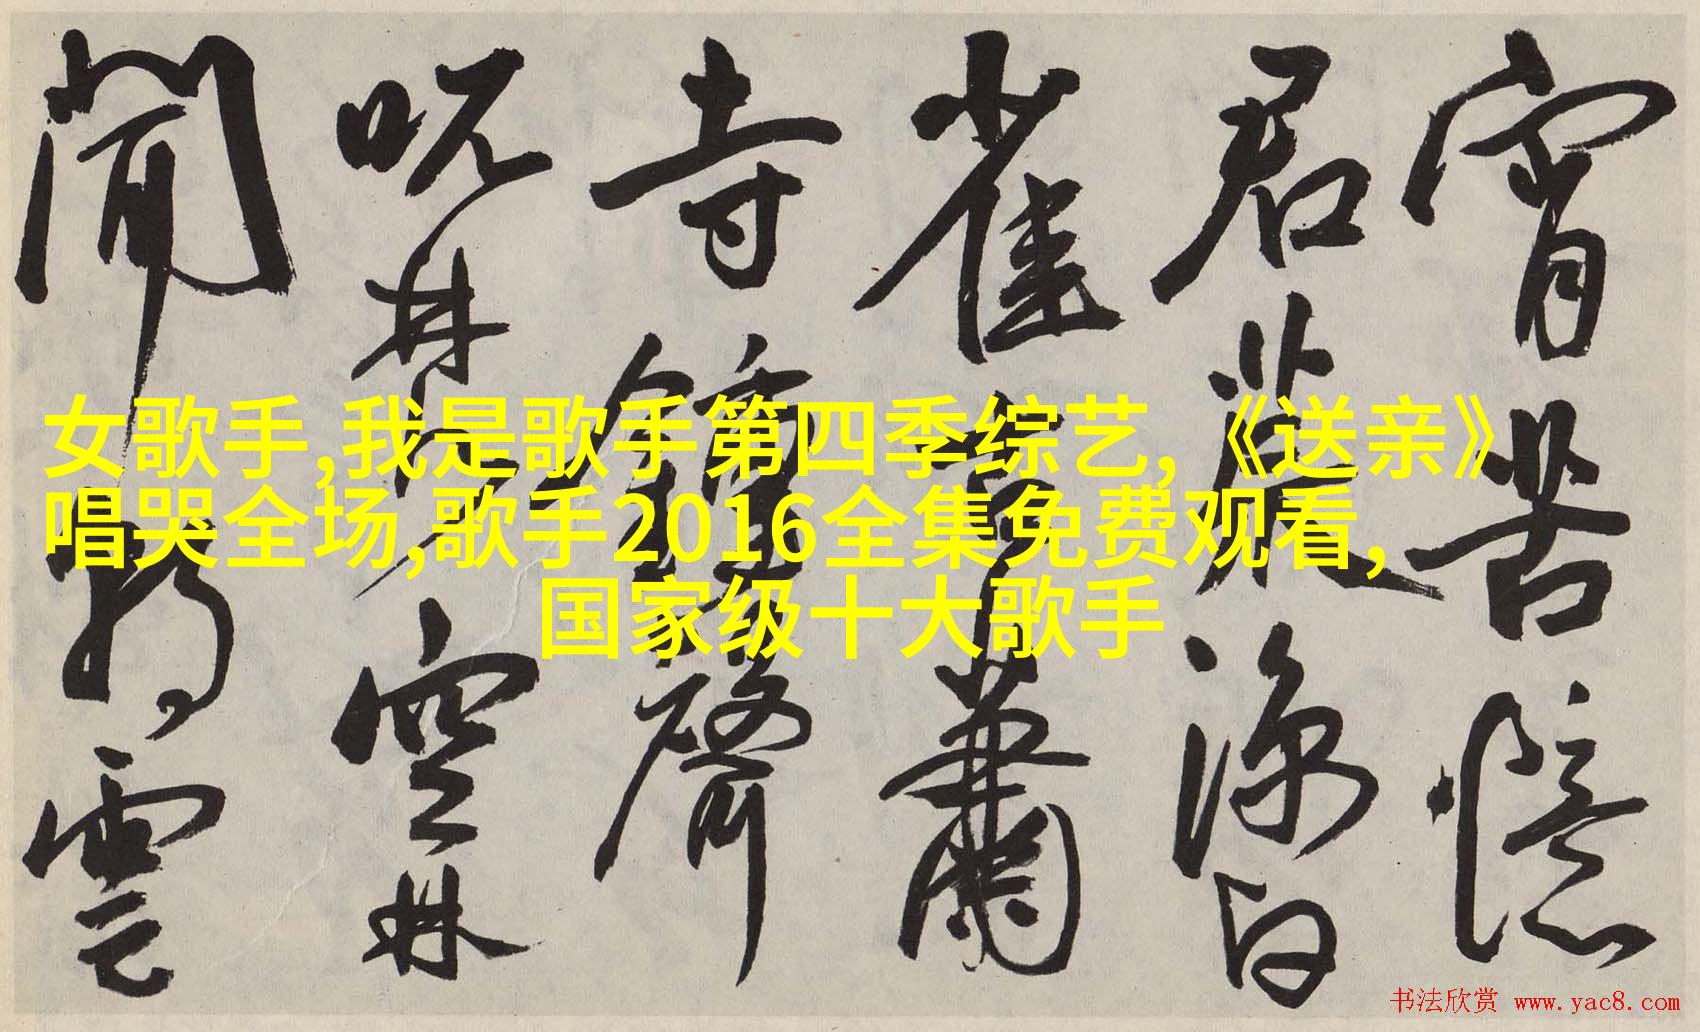 女歌手,我是歌手第四季综艺,《送亲》
唱哭全场,歌手2016全集免费观看,
国家级十大歌手
宵苦憶
君
雀蕭
寺鐘聲
空林
雲
书法欣赏 www.yac8.com